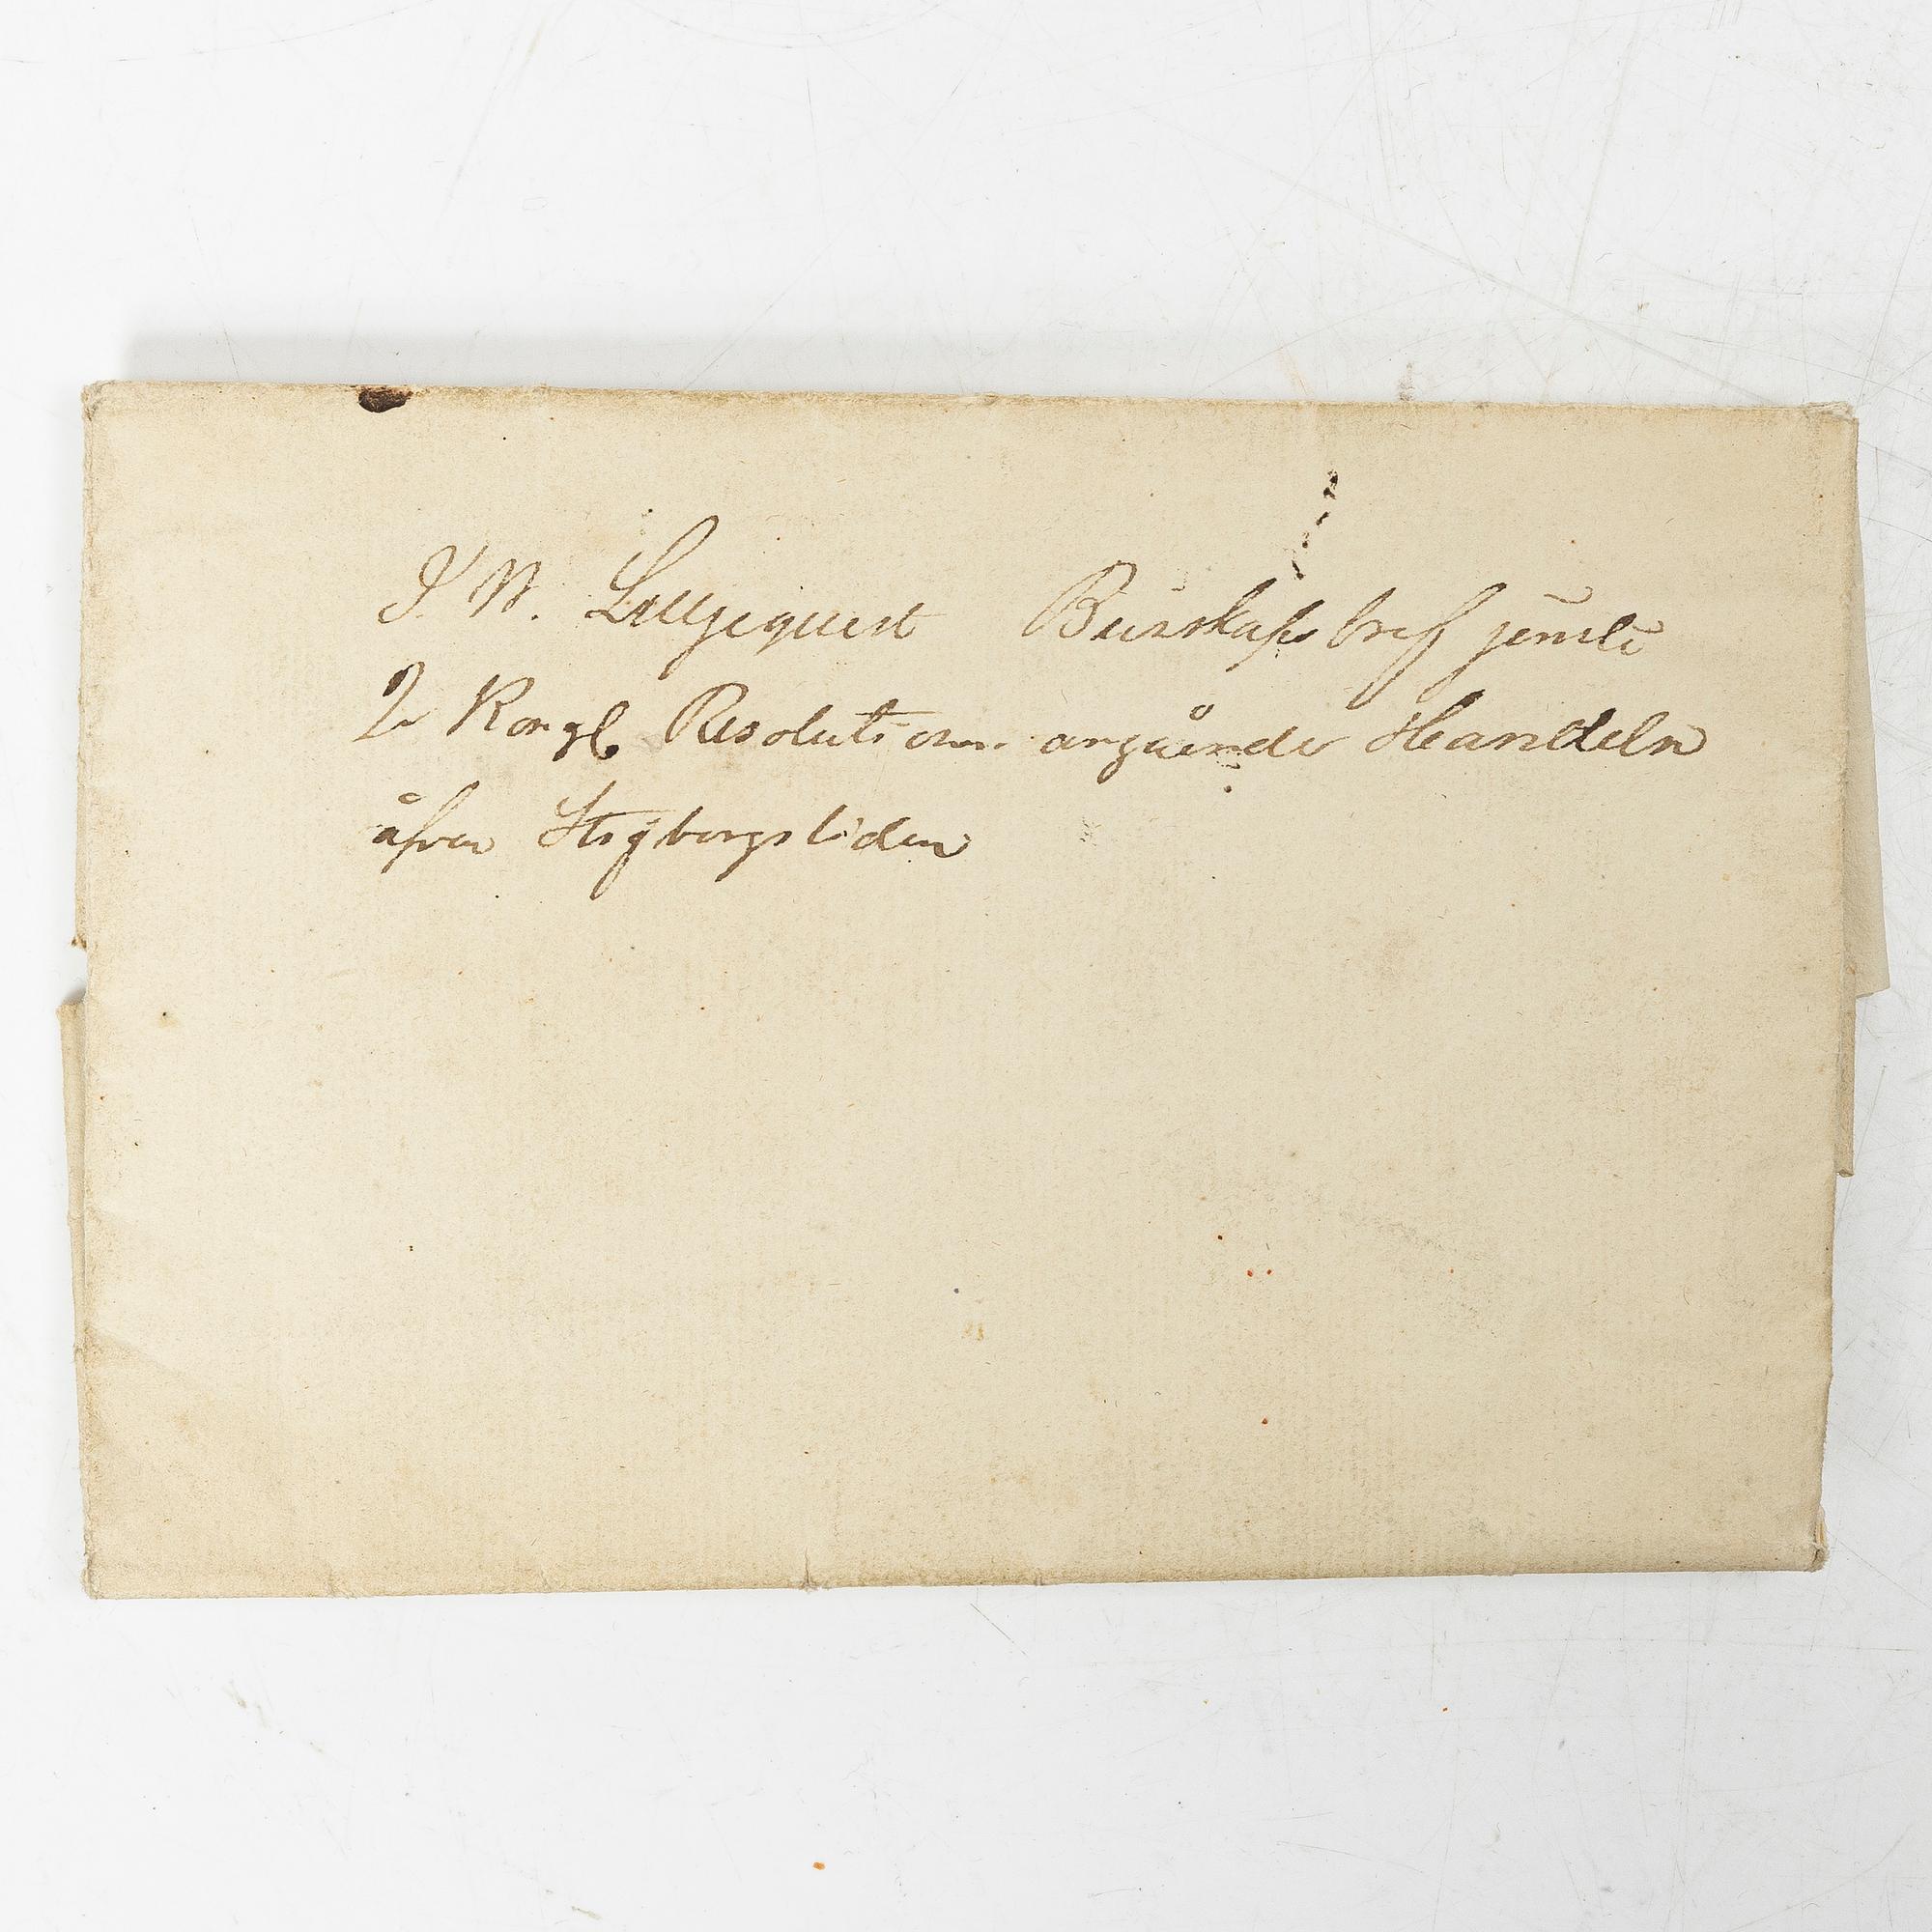 J. W. Liljequist Burskaps bref jemte
2 Kongl Resolution angående Handeln
åfvan Stigbergsliden